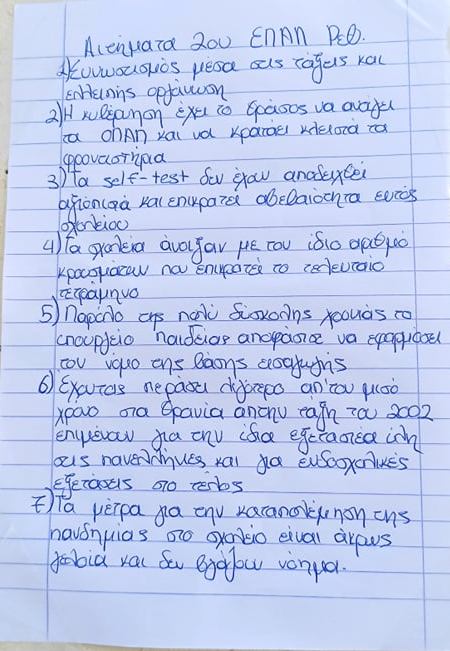 Αιτήματα 2ου ΕΠΑΛ Ρεθ.
1) Συνωστισμός μέσα στις τάξεις και
ελλειπής οργάνωση
2) Η κυβέρνηση έχει το θράσος να ανοίγει
τα ΟΠΑΠ και να κρατάει κλειστά τα
φροντιστήρια
3) Τα self-test δεν έχουν αποδειχθεί
αξιόπιστα και επικρατεί αβεβαιότητα εντός
σχολείου
4) Τα σχολεία άνοιξαν με τον ίδιο αριθμό
κρουσμάτων που επικρατεί το τελευταίο
τετράμηνο
5) Παρόλο της πολύ δύσκολης χρονιάς το
υπουργείο παιδείας αποφάσισε να εφαρμόσει
τον νόμο της βάσης εισαγωγής
6) Έχοντας περάσει λιγότερο απ' τον μισό
χρόνο στα θρανία απ'την τάξη του 2002
επιμένουν για την ίδια εξεταστέα ύλη
στις πανελλήνιες και για ενδοσχολικές
εξετάσεις στο τέλος
7) Τα μέτρα για την καταπολέμηση της
πανδημίας στο σχολείο είναι άκρως
γελοία και δεν βγάζουν νόημα.